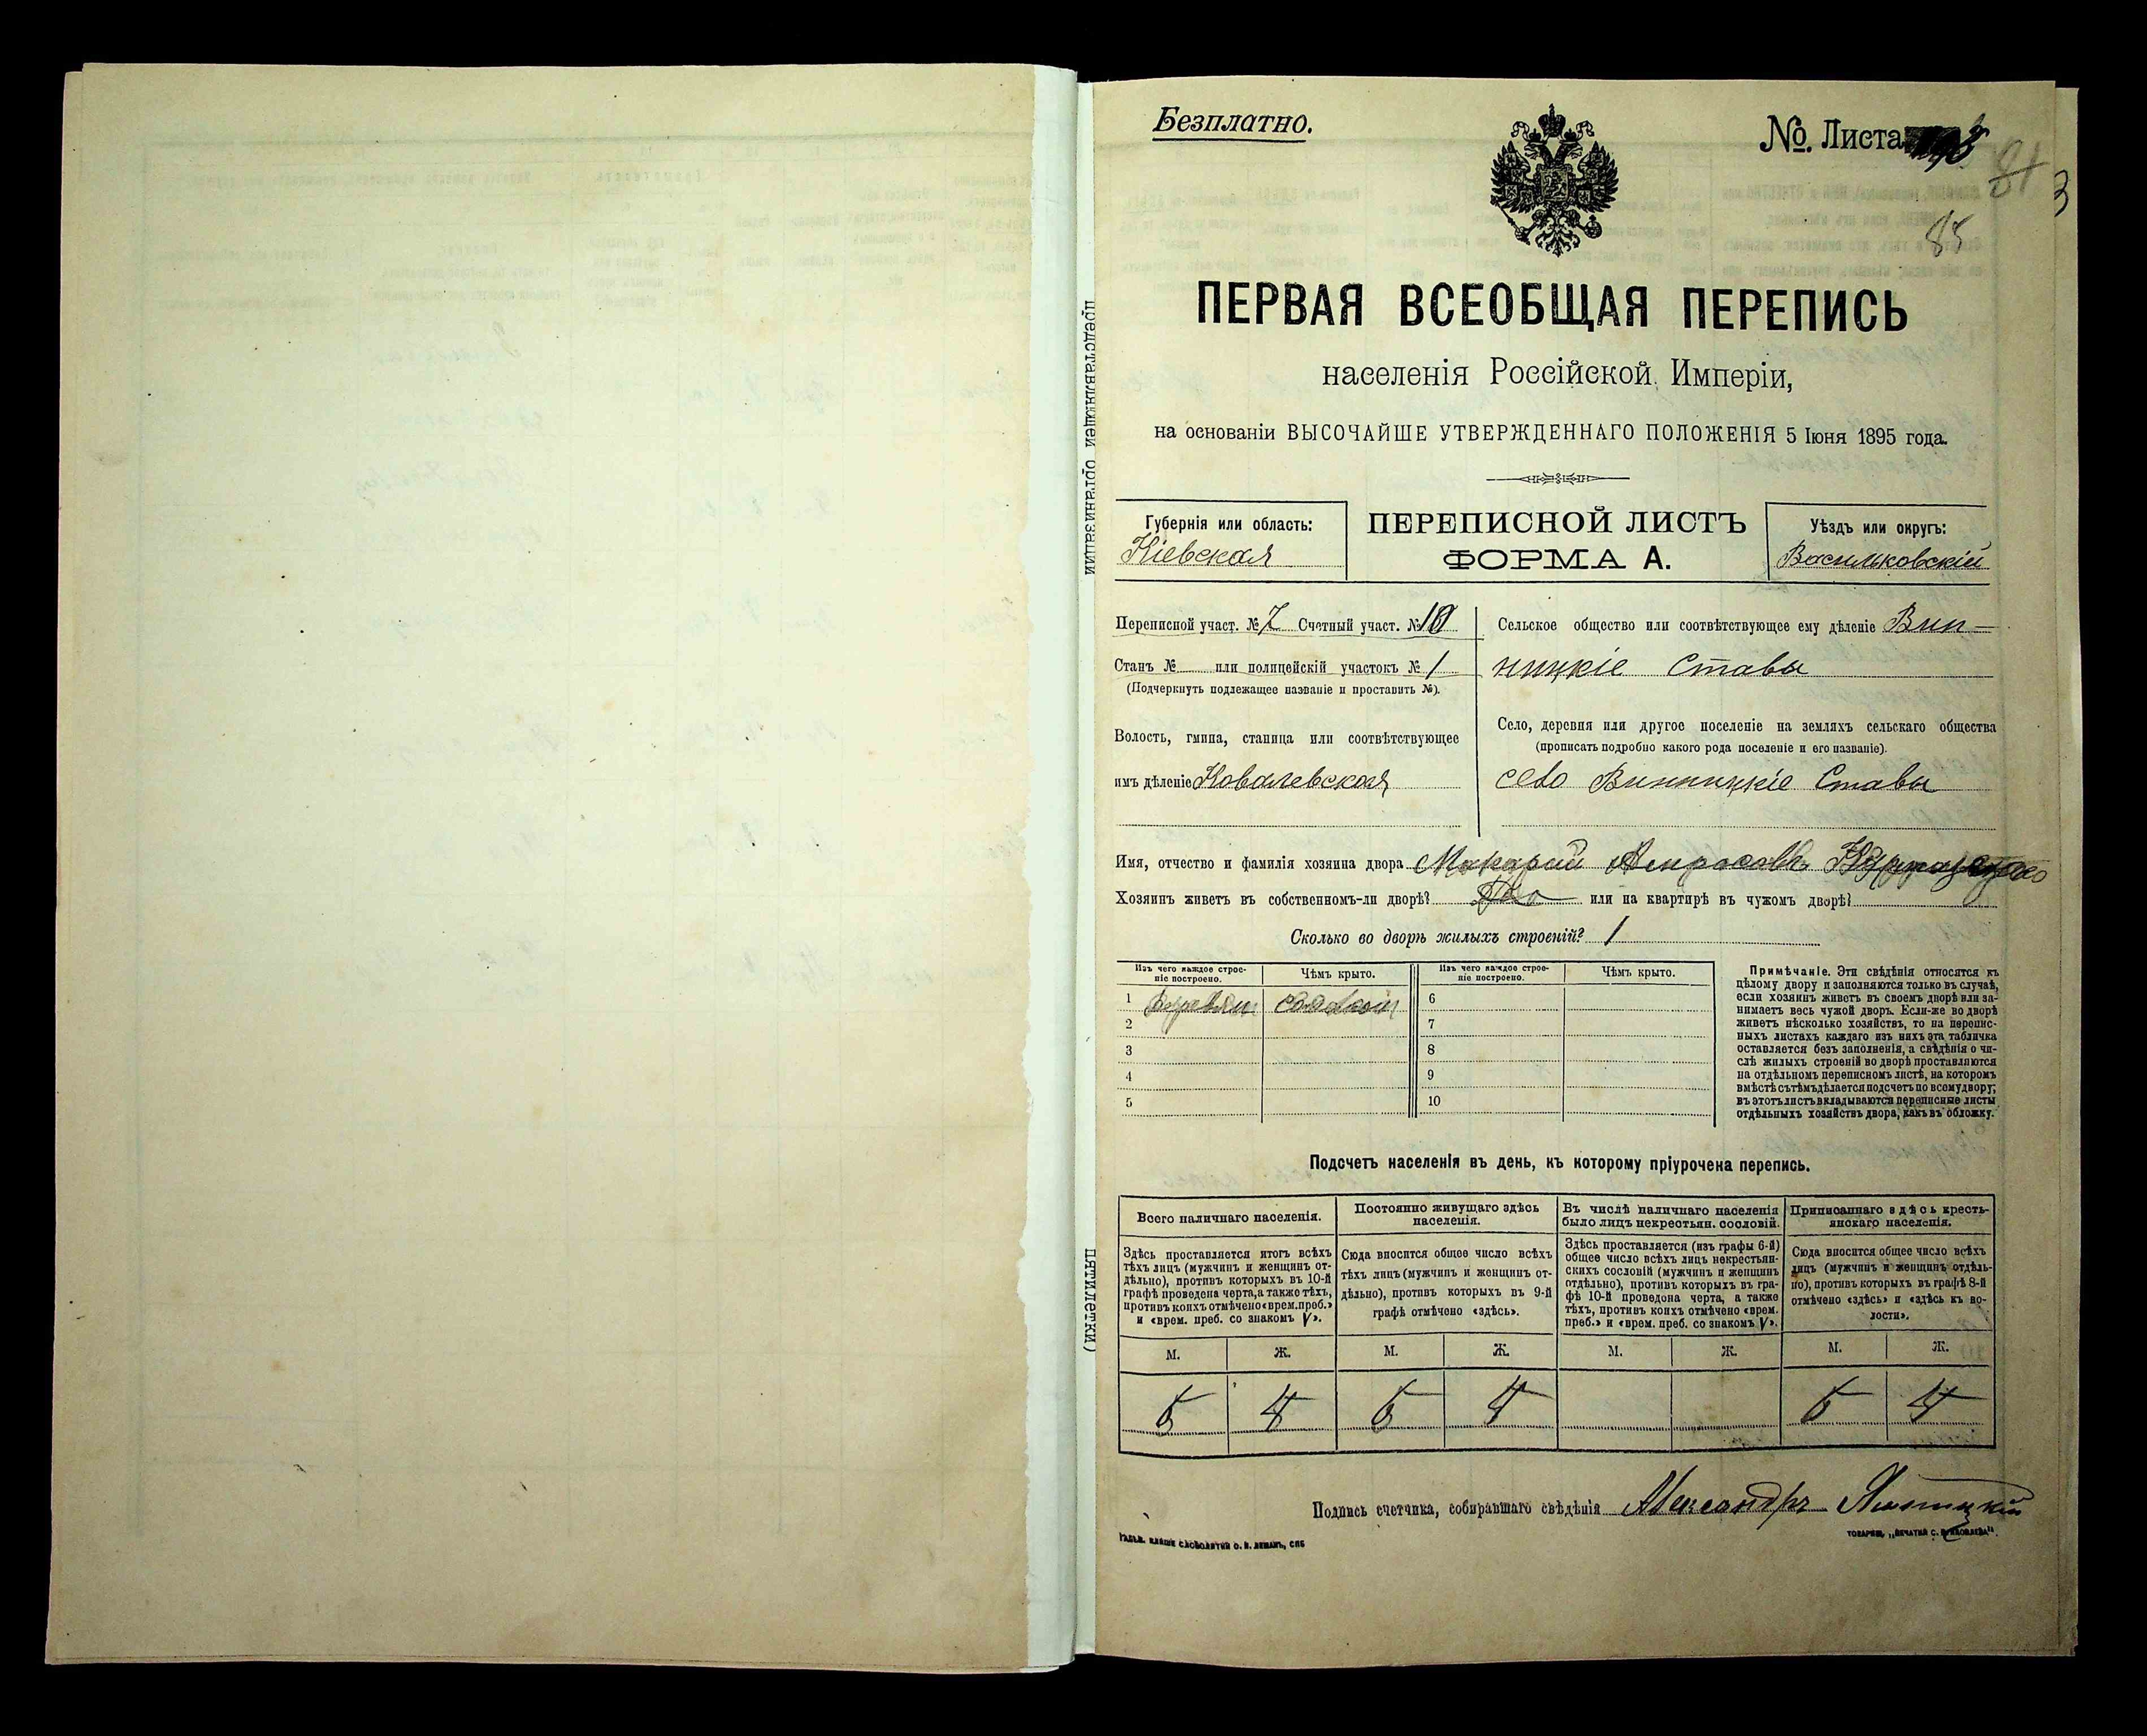 Безплатно.
№. Листа
85
ПЕРВАЯ ВСЕОБЩАЯ ПЕРЕПИСЬ
населенія Россійской Имперіи,
на основаніи ВЫСОЧАЙШЕ УТВЕРЖДЕННАГО ПОЛОЖЕНІЯ 5 Іюня 1895 года.
Губернія или область:
Кіевская
ПЕРЕПИСНОЙ ЛИСТЪ
ФОРМА А.
Уѣздъ или округъ:
Васильковскій
Переписной участ. № 7 Счетный участ. № 10
Станъ № или полицейскій участокъ № 1
(Подчеркнуть подлежащее названіе и проставить №).
Волость, гмина, станица или соотвѣтствующее
имъ дѣленіе Ковалевская
Сельское общество или соотвѣтствующее ему дѣленіе Вин-
ницкіе Ставы
Село, деревня или другое поселеніе на земляхъ сельскаго общества
(прописать подробно какого рода поселеніе и его названіе).
село Винницкіе Ставы
Имя, отчество и фамилія хозяина двора Макарій
Хозяинъ живетъ въ собственномъ-ли дворѣ? или на квартирѣ въ чужомъ дворѣ?
Сколько во дворѣ жилыхъ строеній? 1
Изъ чего каждое строе-
ніе построено.
Чѣмъ крыто.
Изъ чего каждое строе-
ніе построено.
Чѣмъ крыто.
1
2
3
4
5
6
7
8
9
10
Примѣчаніе. Эти свѣдѣнія относятся къ
цѣлому двору и заполняются только въ случаѣ,
если хозяинъ живетъ въ своемъ дворѣ или за-
нимаетъ весь чужой дворъ. Если-же во дворѣ
живетъ нѣсколько хозяйствъ, то на перепис-
ныхъ листахъ каждаго изъ нихъ эта табличка
оставляется безъ заполненія, а свѣдѣнія о чи-
слѣ жилыхъ строеній во дворѣ проставляются
на отдѣльномъ переписномъ листѣ, на которомъ
вмѣстѣ съ тѣмъ дѣлается подсчетъ по всему двору;
въ этотъ листъ вкладываются переписные листы
отдѣльныхъ хозяйствъ двора, какъ въ обложку.
Подсчетъ населенія въ день, къ которому пріурочена перепись.
Всего наличнаго населенія.
Здѣсь проставляется итогъ всѣхъ
тѣхъ лицъ (мужчинъ и женщинъ от-
дѣльно), противъ которыхъ въ 10-й
графѣ проведена черта, а также тѣхъ,
противъ коихъ отмѣчено «врем. преб.»
и «врем. преб. со знакомъ V».
Постоянно живущаго здѣсь
населенія.
Сюда вносится общее число всѣхъ
тѣхъ лицъ (мужчинъ и женщинъ от-
дѣльно), противъ которыхъ въ 9-й
графѣ отмѣчено «здѣсь».
Въ числѣ наличнаго населенія
было лицъ некрестьян. сословій.
Здѣсь проставляется (изъ графы 6-й)
общее число всѣхъ лицъ некрестьян-
скихъ сословій (мужчинъ и женщинъ
отдѣльно), противъ которыхъ въ гра-
фѣ 10-й проведена черта, а также
тѣхъ, противъ коихъ отмѣчено «врем.
преб.» и «врем. преб. со знакомъ V».
Приписаннаго здѣсь кресть-
янскаго населенія.
Сюда вносится общее число всѣхъ
лицъ (мужчинъ и женщинъ отдѣль-
но), противъ которыхъ въ графѣ 8-й
отмѣчено «здѣсь» и «здѣсь къ во-
лости».
М. Ж. М. Ж. М. Ж. М. Ж.
Подпись счетчика, собиравшаго свѣдѣнія Александръ
представляющей организации
пятилетки)